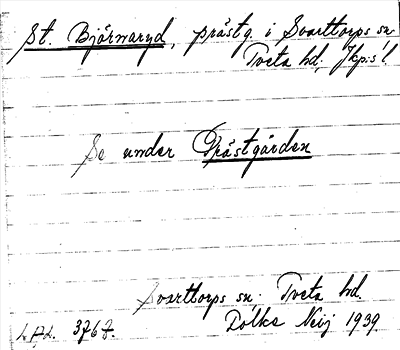 St. Björnaryd, prästg. i Svarttorps sn
Tveta hd, Jkp:s l.
Se under Prästgården
Svarttorps sn, Tveta hd.
Folke Neij 1939.